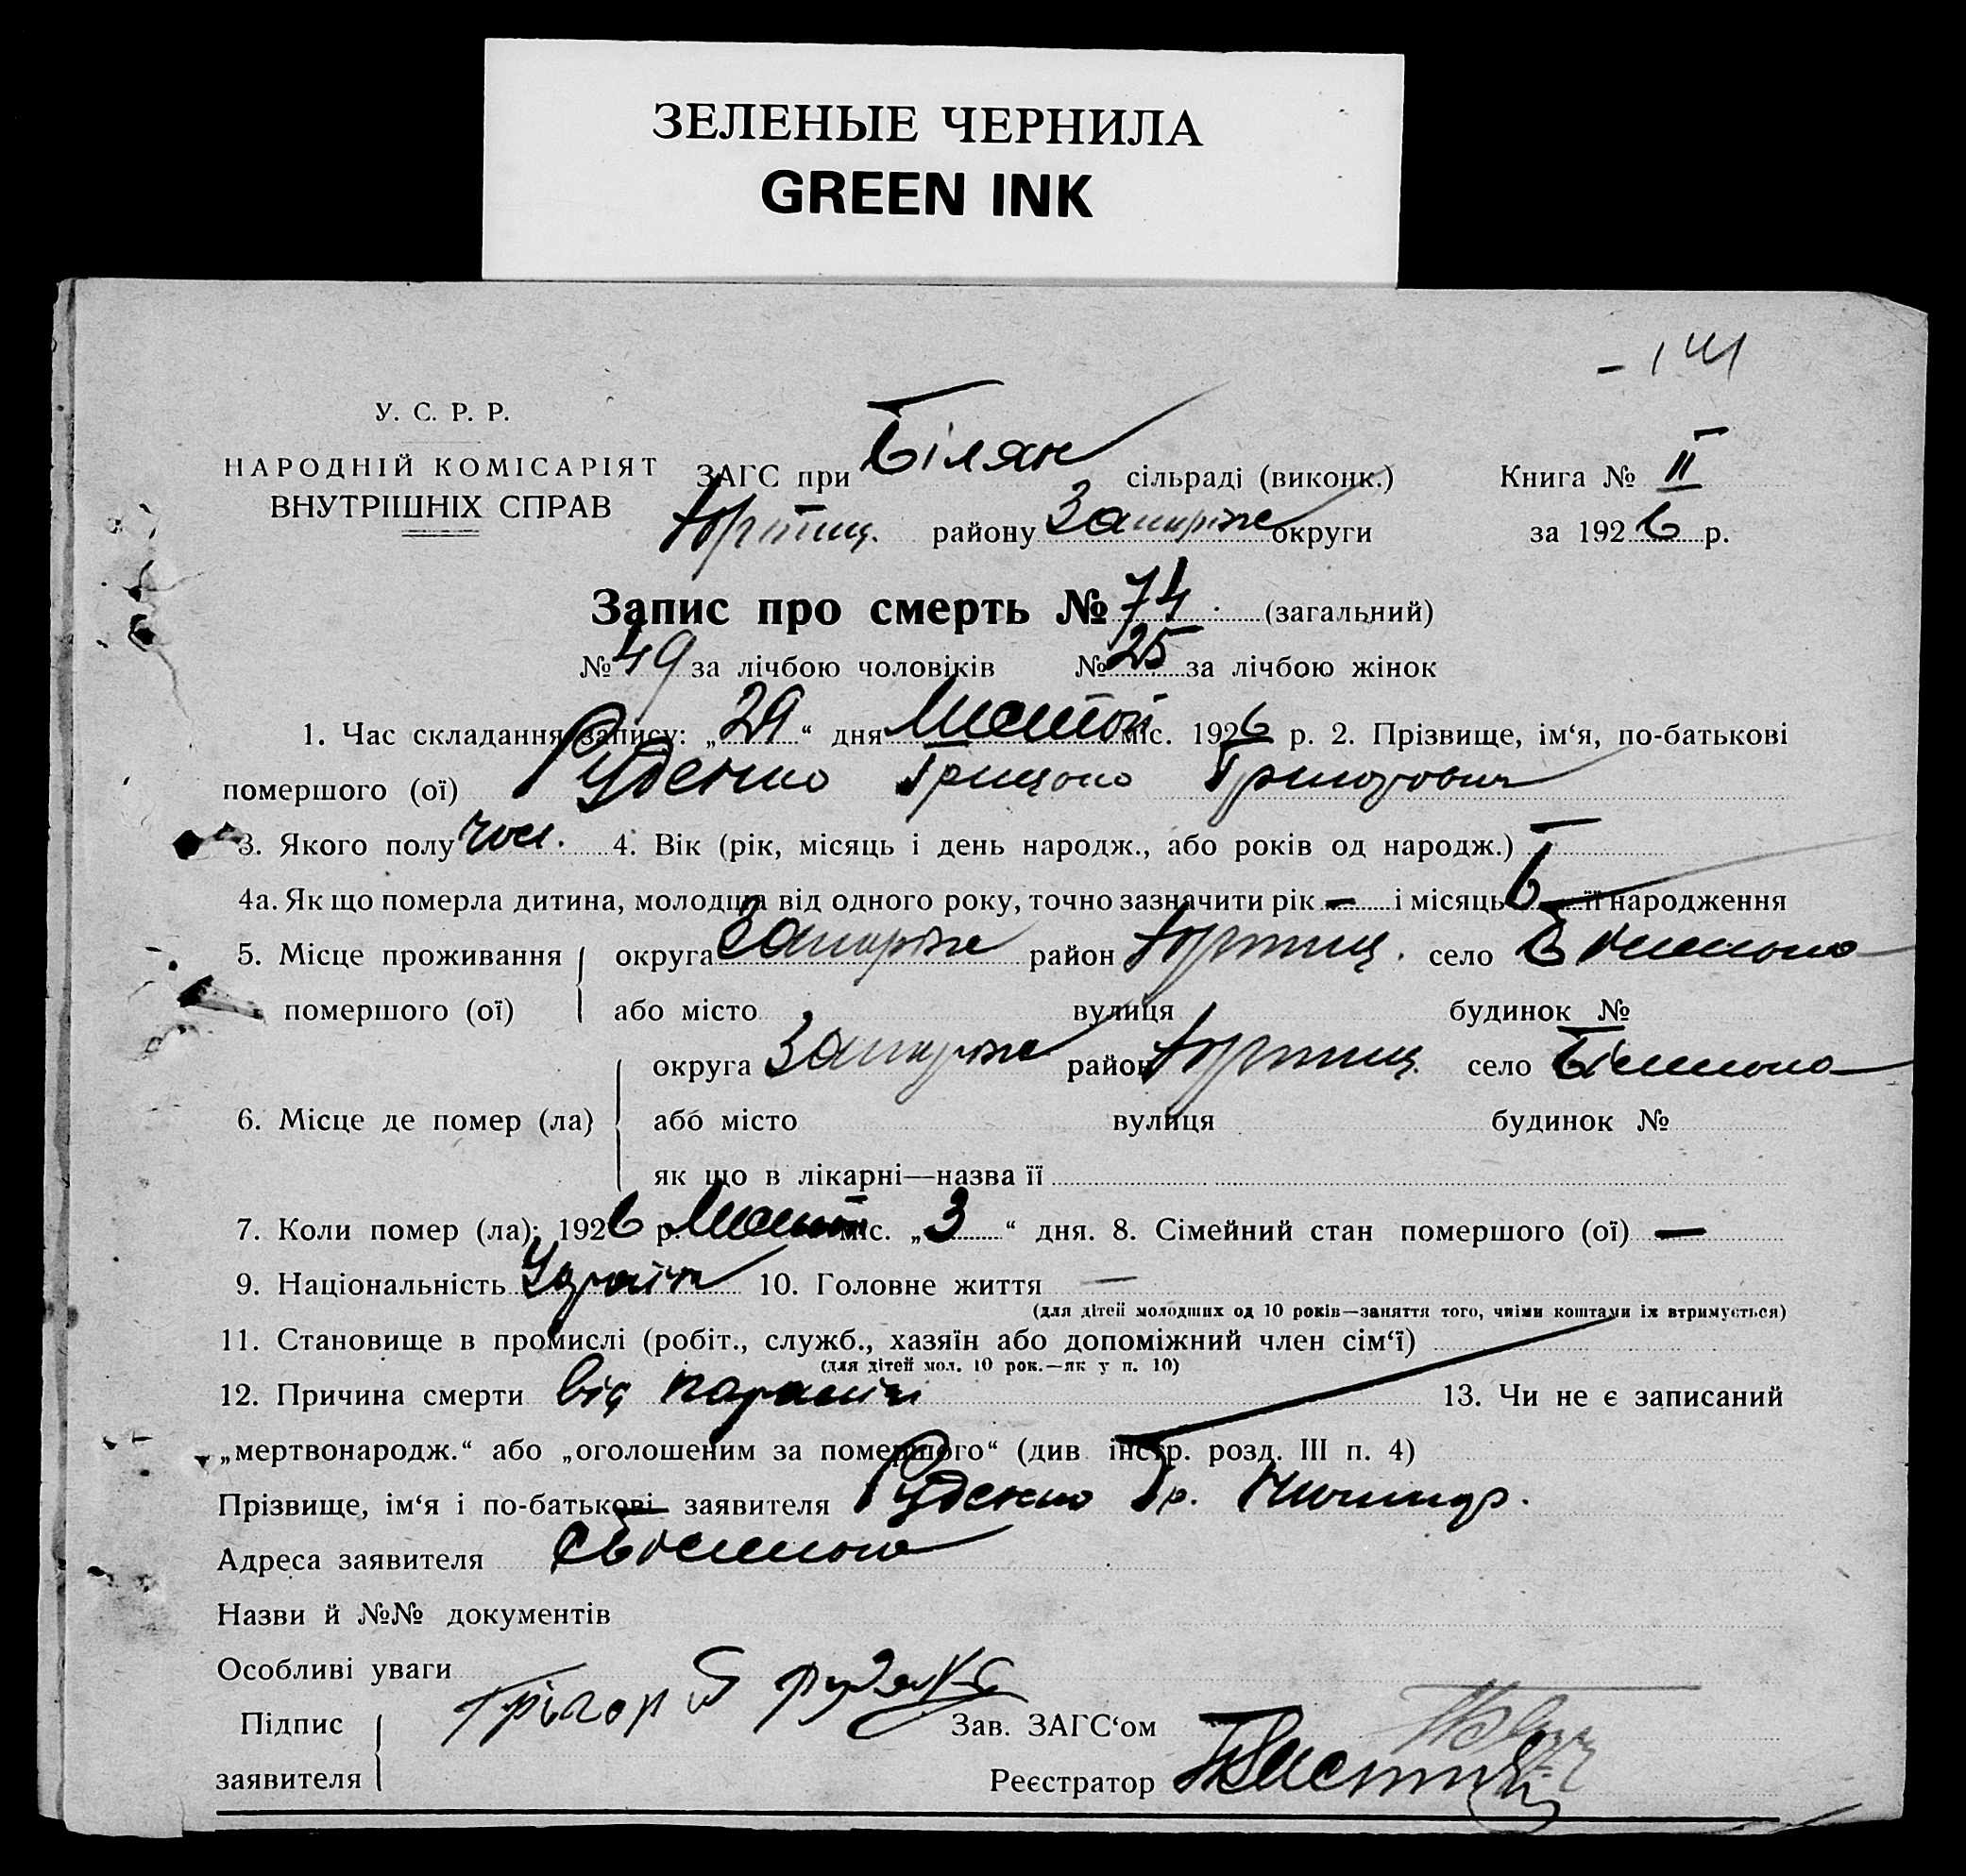 ЗЕЛЕНЫЕ ЧЕРНИЛА
GREEN INK
У. С. Р. Р.
НАРОДНІЙ КОМІСАРІЯТ
ВНУТРІШНІХ СПРАВ
ЗАГС при Білян сільраді (виконк.)
району Запоріже округи
Книга № II
за 1926 р.
Запис про смерть № 74 (загальний)
№ 49 за лічбою чоловіків № 25 за лічбою жінок
1. Час складання запису: „29“ дня міс. 1926 р. 2. Прізвище, ім‘я, по-батькові
помершого (ої) Руденко Грицько Григорович
3. Якого полу чол. 4. Вік (рік, місяць і день народж., або років од народж.)
4а. Як що померла дитина, молодша від одного року, точно зазначити рік — і місяць її народження
5. Місце проживання помершого (ої) округа Запоріже район село
або місто вулиця будинок №
6. Місце де помер (ла) округа Запоріже район село
або місто вулиця будинок №
як що в лікарні—назва її
7. Коли помер (ла): 1926 р. міс. „3“ дня. 8. Сімейний стан помершого (ої) —
9. Національність Україн 10. Головне життя —
(для дітей молодших од 10 років—заняття того, чиїми коштами їх втримується)
11. Становище в промислі (робіт., служб., хазяїн або допоміжний член сім‘ї)
(для дітей мол. 10 рок.—як у п. 10)
12. Причина смерти від 13. Чи не є записаний
„мертвонародж.“ або „оголошеним за помершого“ (див інстр. розд. III п. 4)
Прізвище, ім‘я і по-батькові заявителя Руденко Гр.
Адреса заявителя
Назви й №№ документів
Особливі уваги
Підпис заявителя
Зав. ЗАГС‘ом
Реєстратор